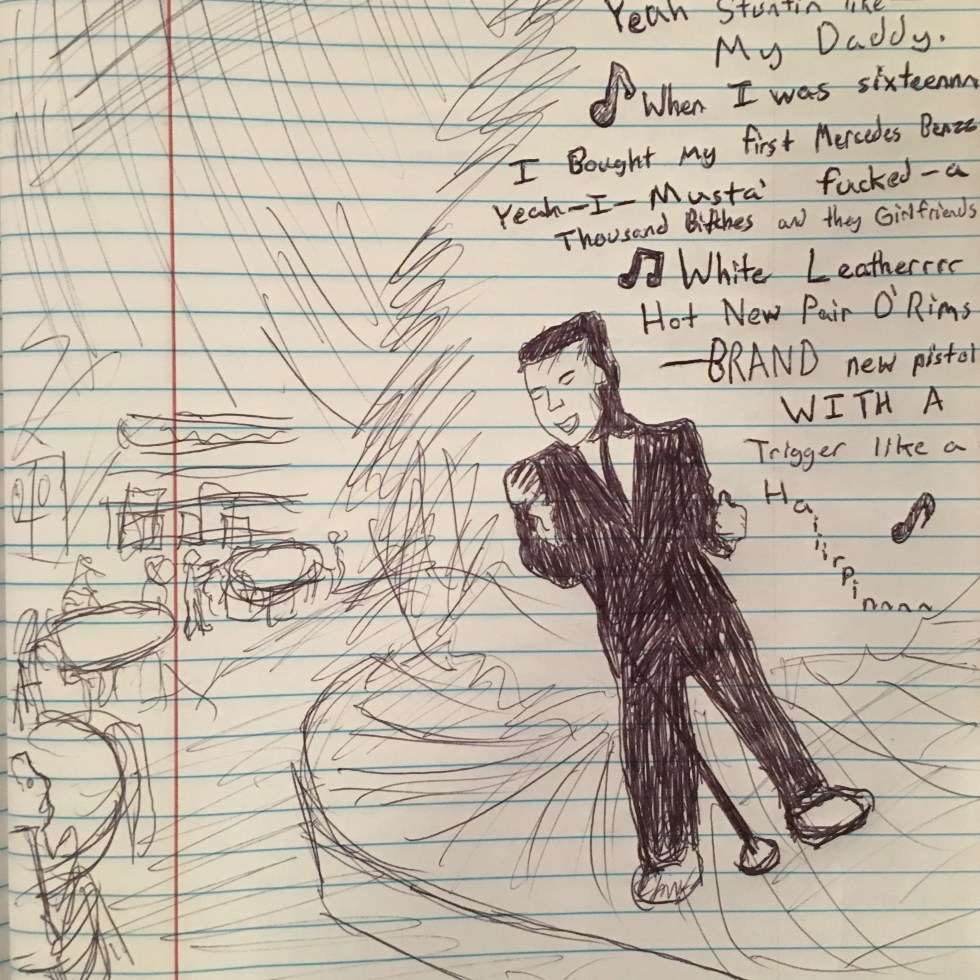 Yeah Stuntin like
My Daddy.
When I was sixteennn
I Bought my first Mercedes Benzz
Yeah-I-Musta' fucked-a
Thousand Bitches and they Girlfriends
White Leatherrrr
Hot New Pair O'Rims
—BRAND new pistol
WITH A
Trigger like a
Haiiirpinnnn